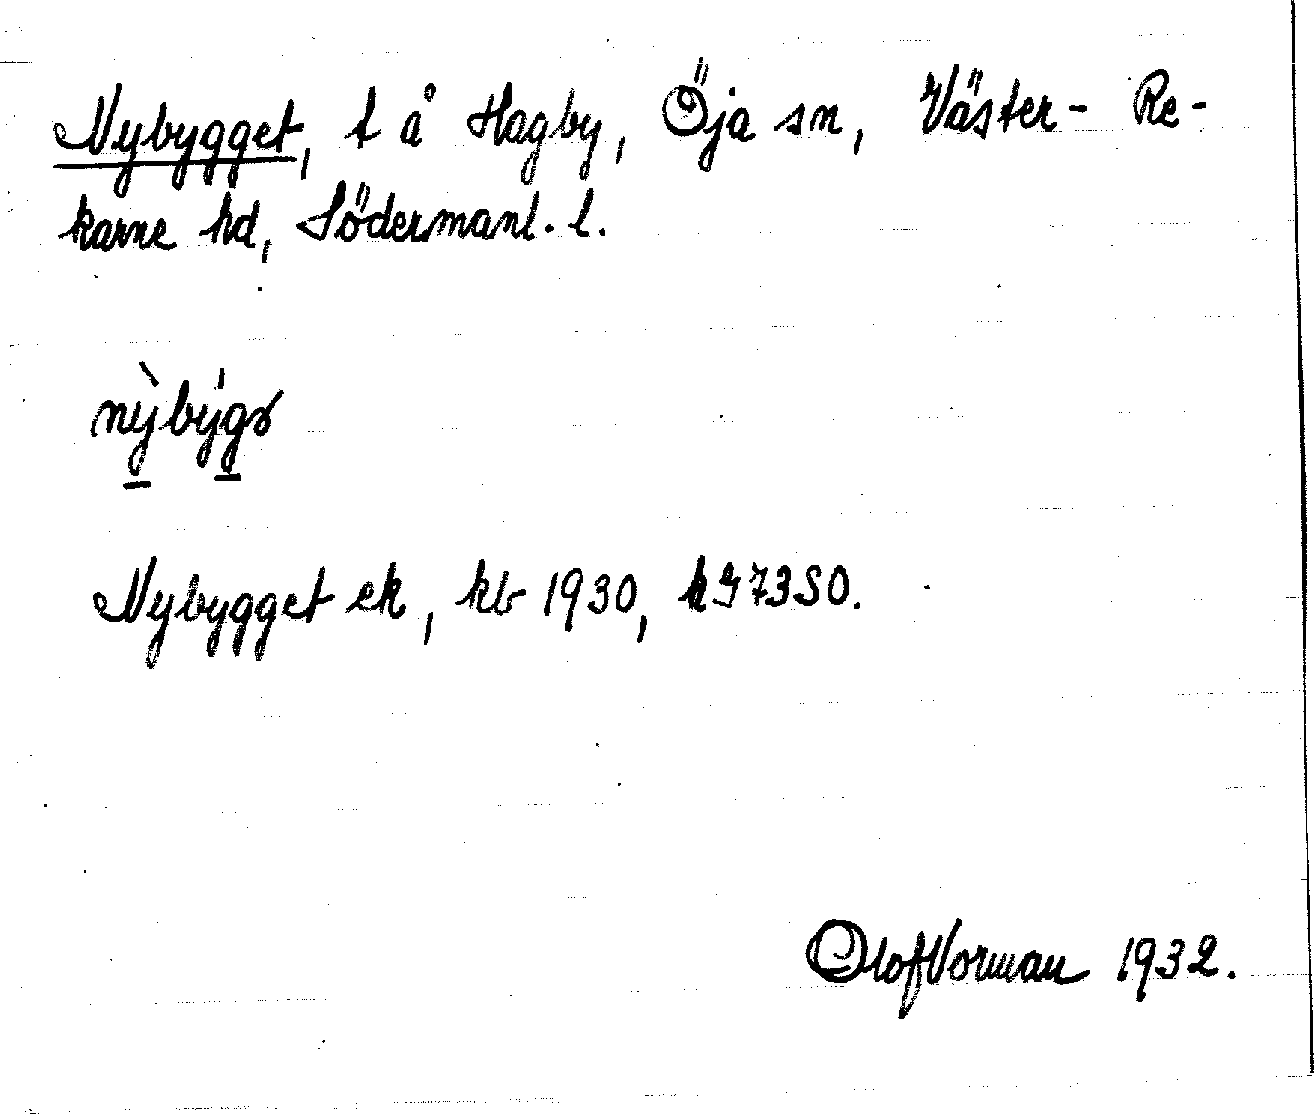 Nybygget, t å Hagby, Öja sn, Väster-Re-
karne hd, Södermanl. l.
Nybygget ek, kb 1930, k973SO.
Olof Vorman 1932.